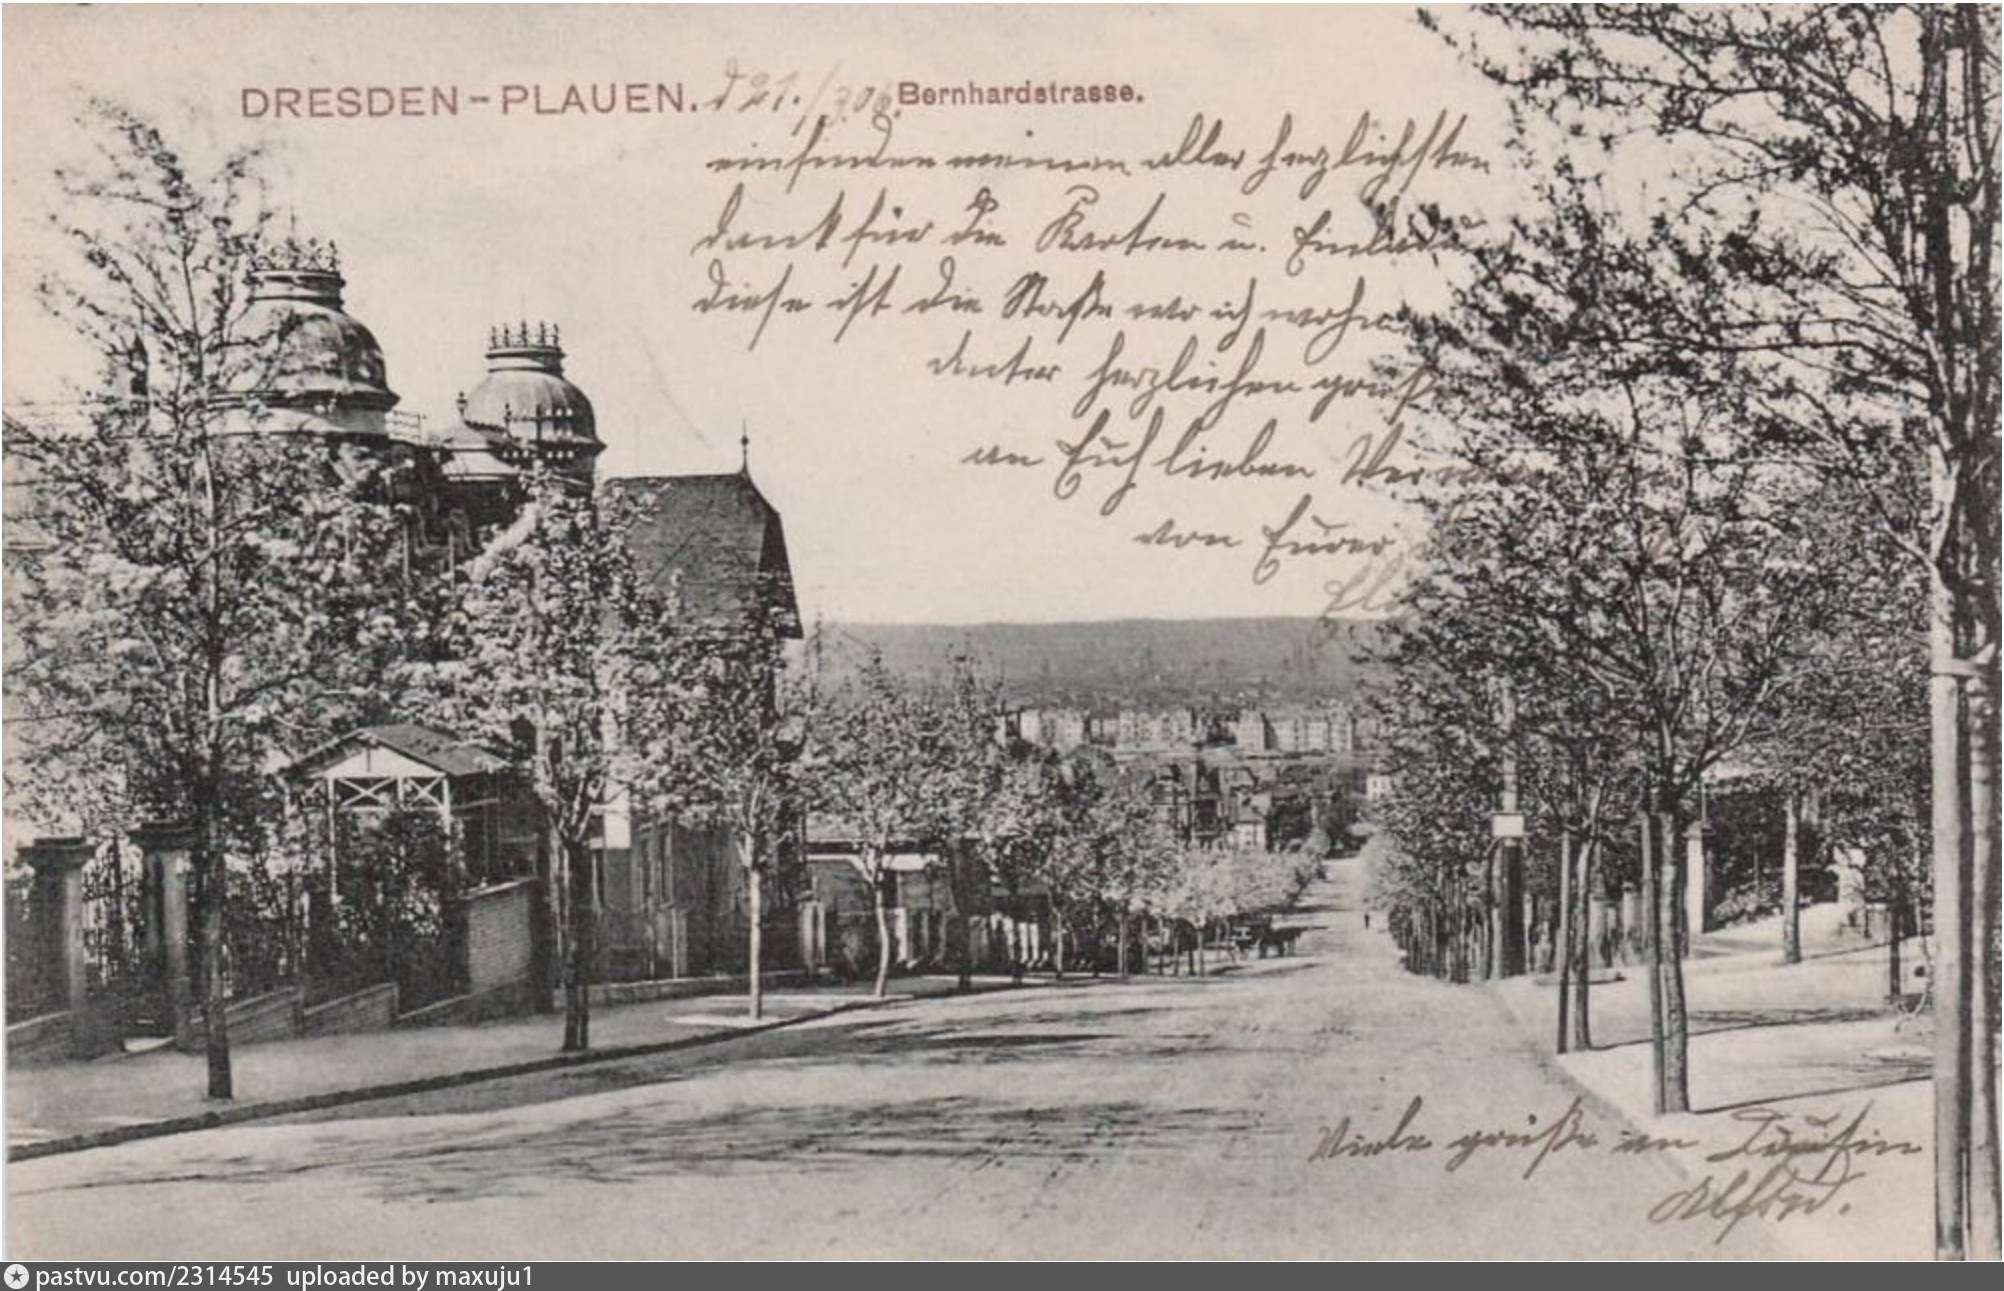 DRESDEN-PLAUEN. d 21./3.06. Bernhardstrasse.
einfinden meinen aller herzlichsten
dank für die Karten u. Einladu
diese ist die Straße wo ich wohne
unter herzlichen grüße
an Euch lieben
von Eurer
Viele grüße an
Alfred.
pastvu.com/2314545 uploaded by maxuju1